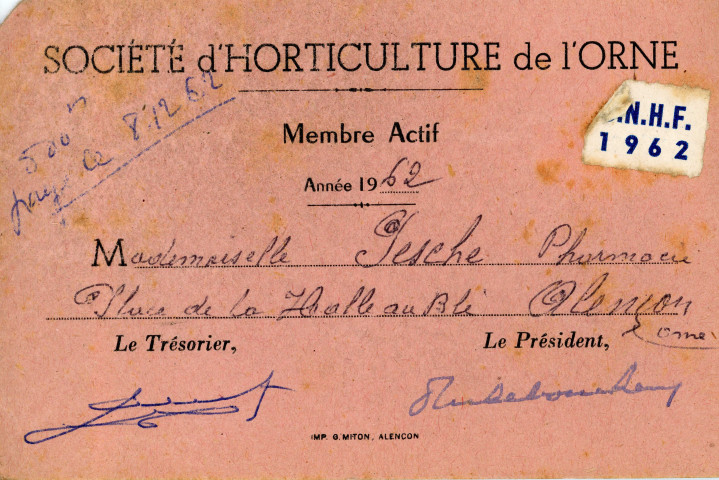 SOCIÉTÉ d'HORTICULTURE de l'ORNE
500
payé le 8.12.62
.N.H.F.
1962
Membre Actif
Année 1962
Mademoiselle Pesche Pharmacie
Place de la Halle au Blé Alençon
Orne
Le Trésorier, Le Président,
IMP. G. MITON, ALENCON